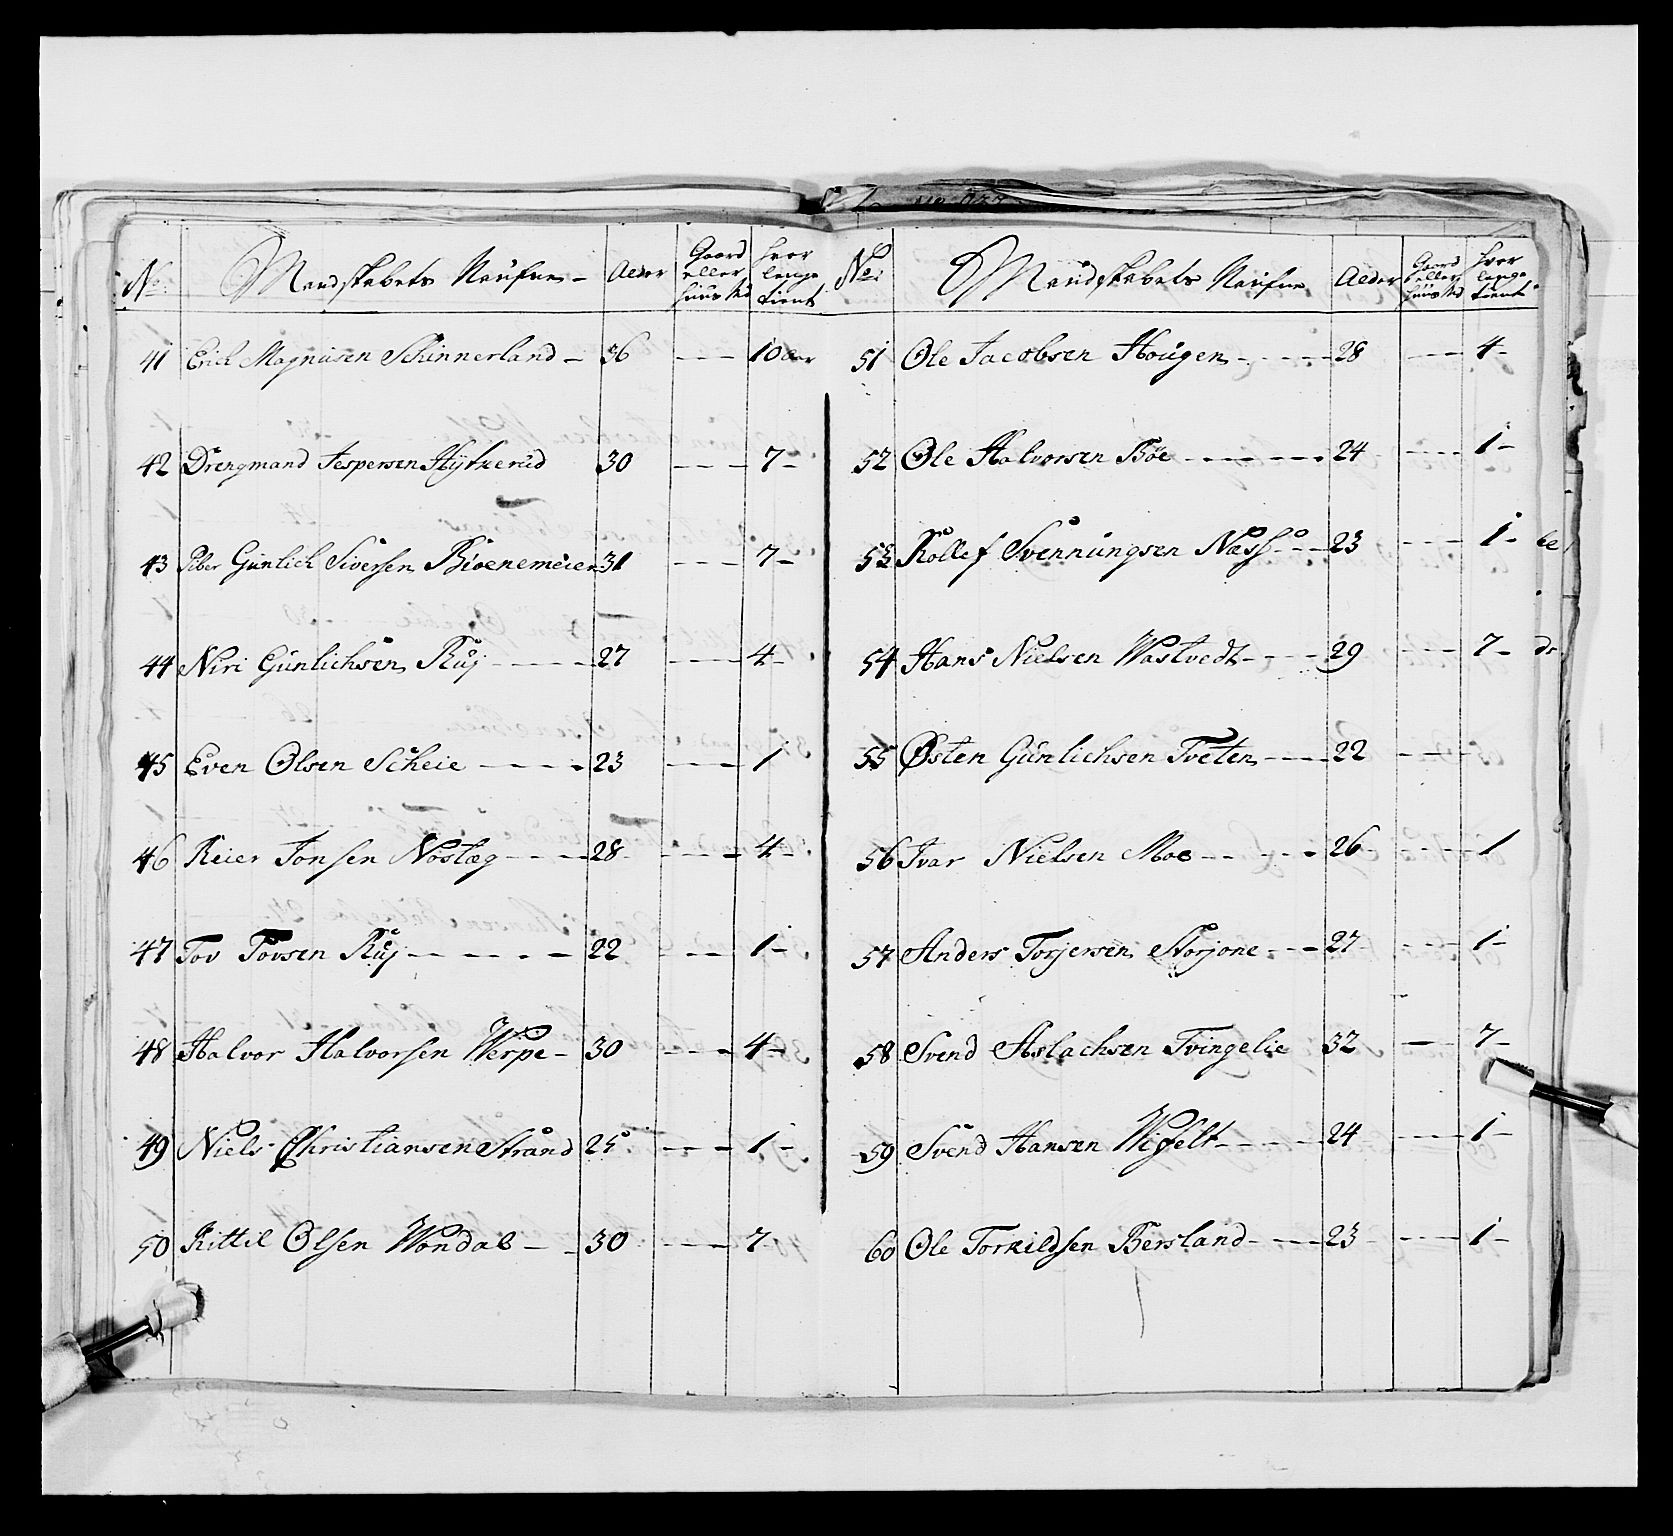 No Mandskabets Naufne - Alder Gaard eller Huus Sted hvor lenge tient
41 Erich Magnusen Schinnerland - 36 - - - 10 aar
42 Drengmand Jespersen 30 - - - 7 -
43 Piber Gunlich Siversen 31 - - - 7 -
44 Niri Gunlichsen Ruj - - - - 27 - - - - 4 -
45 Even Olsen Scheie - - - - 23 - - - - 1
46 Reier Jonsen Noslæg - - - - 28 - - - - 4 -
47 Tov Tovsen Ruj - - - - - - 22 - - - 1 -
48 Halvor Halvorsen Werpe - 30 - - - 4 -
49 Niels Christiansen Strand 25 - - - 1 -
50 Kittil Olsen Wondal - - 30 - - - 7
No: Mandskabets Naufne Alder Gaard eller Huus Sted hvor lenge tient
51 Ole Jacobsen Hougen - - - - 28 - - - 4 -
52 Ole Halvorsen Bøe - - - - - - 24 - - - - 1 -
53 Rollef Svennungsen Næss - - - 23 - - - 1 -
54 Hans Nielsen Wastvedt - - - - 29 - - - 7 -
55 Østen Gunlichsen Tveten - - - - 22 - - -
56 Ivar Nielsen Moe - - - - - 26 - - - 1
57 Anders Torjersen Storjone - - - 27 - - - 1 -
58 Svend Aslachsen Tvingelie 32 - - 7 -
59 Svend Hansen Wifelt - - - - - 24 - - - - 1 -
60 Ole Torkildsen Bersland - - - - 23 - - - - 1 -